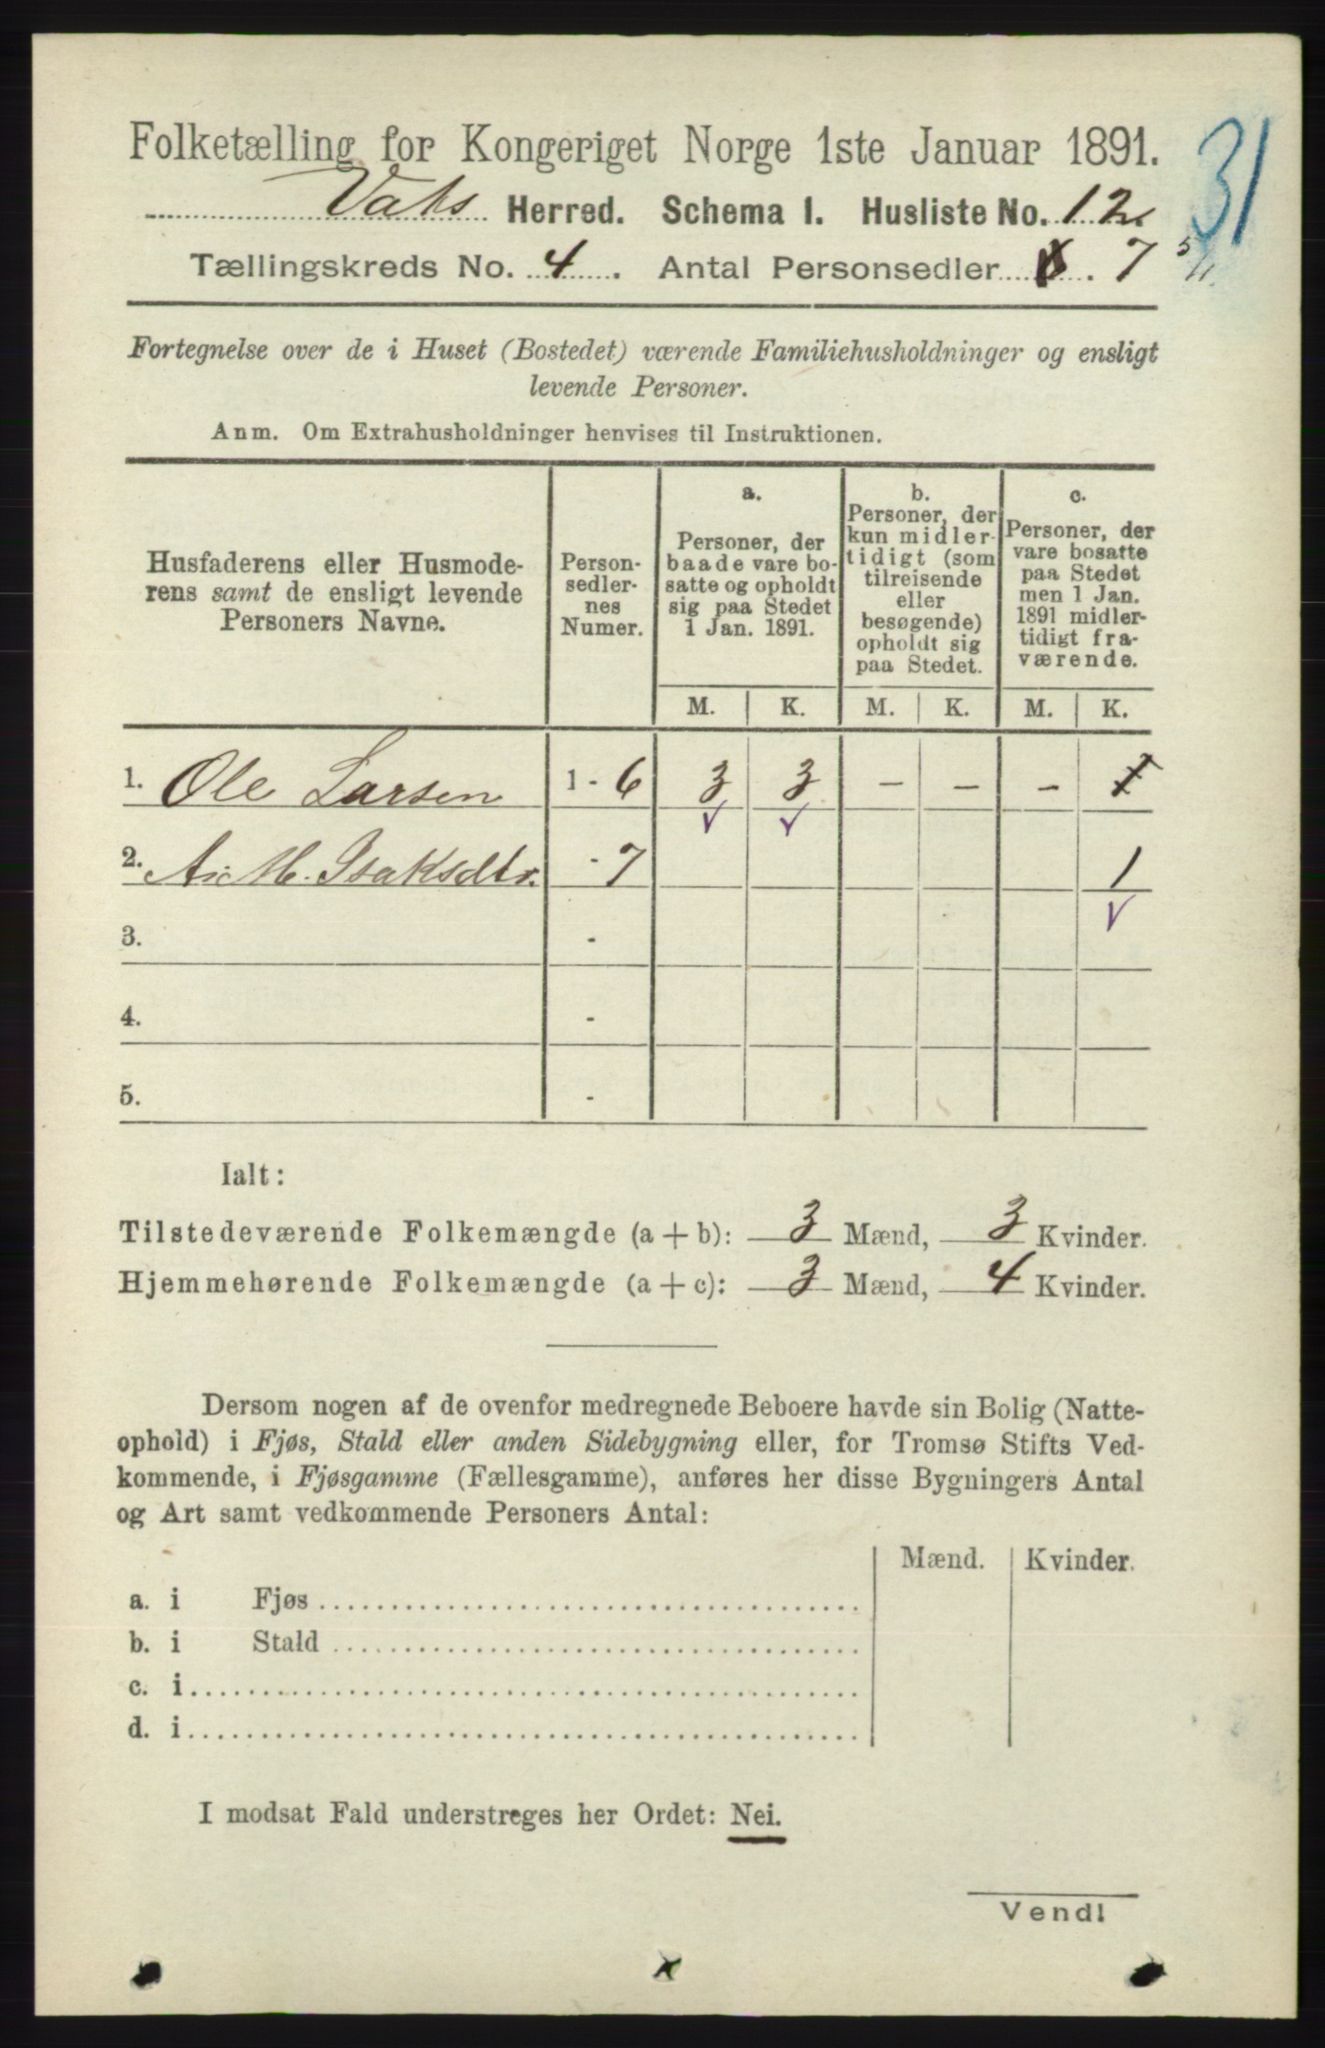 Folketælling for Kongeriget Norge 1ste Januar 1891.
31
Vats Herred. Schema I. Husliste No. 12.
Tællingskreds No. 4. Antal Personsedler . 7
5/11.
Fortegnelse over de i Huset (Bostedet) værende Familiehusholdninger og ensligt
levende Personer.
Anm. Om Extrahusholdninger henvises til Instruktionen.
Husfaderens eller Husmode-
rens samt de ensligt levende
Personers Navne.
Person-
sedler-
nes
Numer.
a.
Personer, der
baade vare bo-
satte og opholdt
sig paa Stedet
1 Jan. 1891.
b.
Personer, der
kun midler-
tidigt (som
tilreisende
eller
besøgende)
opholdt sig
paa Stedet.
c.
Personer, der
vare bosatte
paa Stedet
men 1 Jan.
1891 midler-
tidigt fra-
værende.
M. K. M. K. M. K.
1. Ole Larsen 1 - 6 3 3 - - - 1
2. A. M. Isaksdtr. - 7 1
3. -
4. -
5. -
Ialt:
Tilstedeværende Folkemængde (a + b): 3 Mænd, 3 Kvinder.
Hjemmehørende Folkemængde (a + c): 3 Mænd, 4 Kvinder.
Dersom nogen af de ovenfor medregnede Beboere havde sin Bolig (Natte-
ophold) i Fjøs, Stald eller anden Sidebygning eller, for Tromsø Stifts Ved-
kommende, i Fjøsgamme (Fællesgamme), anføres her disse Bygningers Antal
og Art samt vedkommende Personers Antal:
Mænd. Kvinder.
a. i Fjøs
b. i Stald
c. i
d. i
I modsat Fald understreges her Ordet: Nei.
Vend!